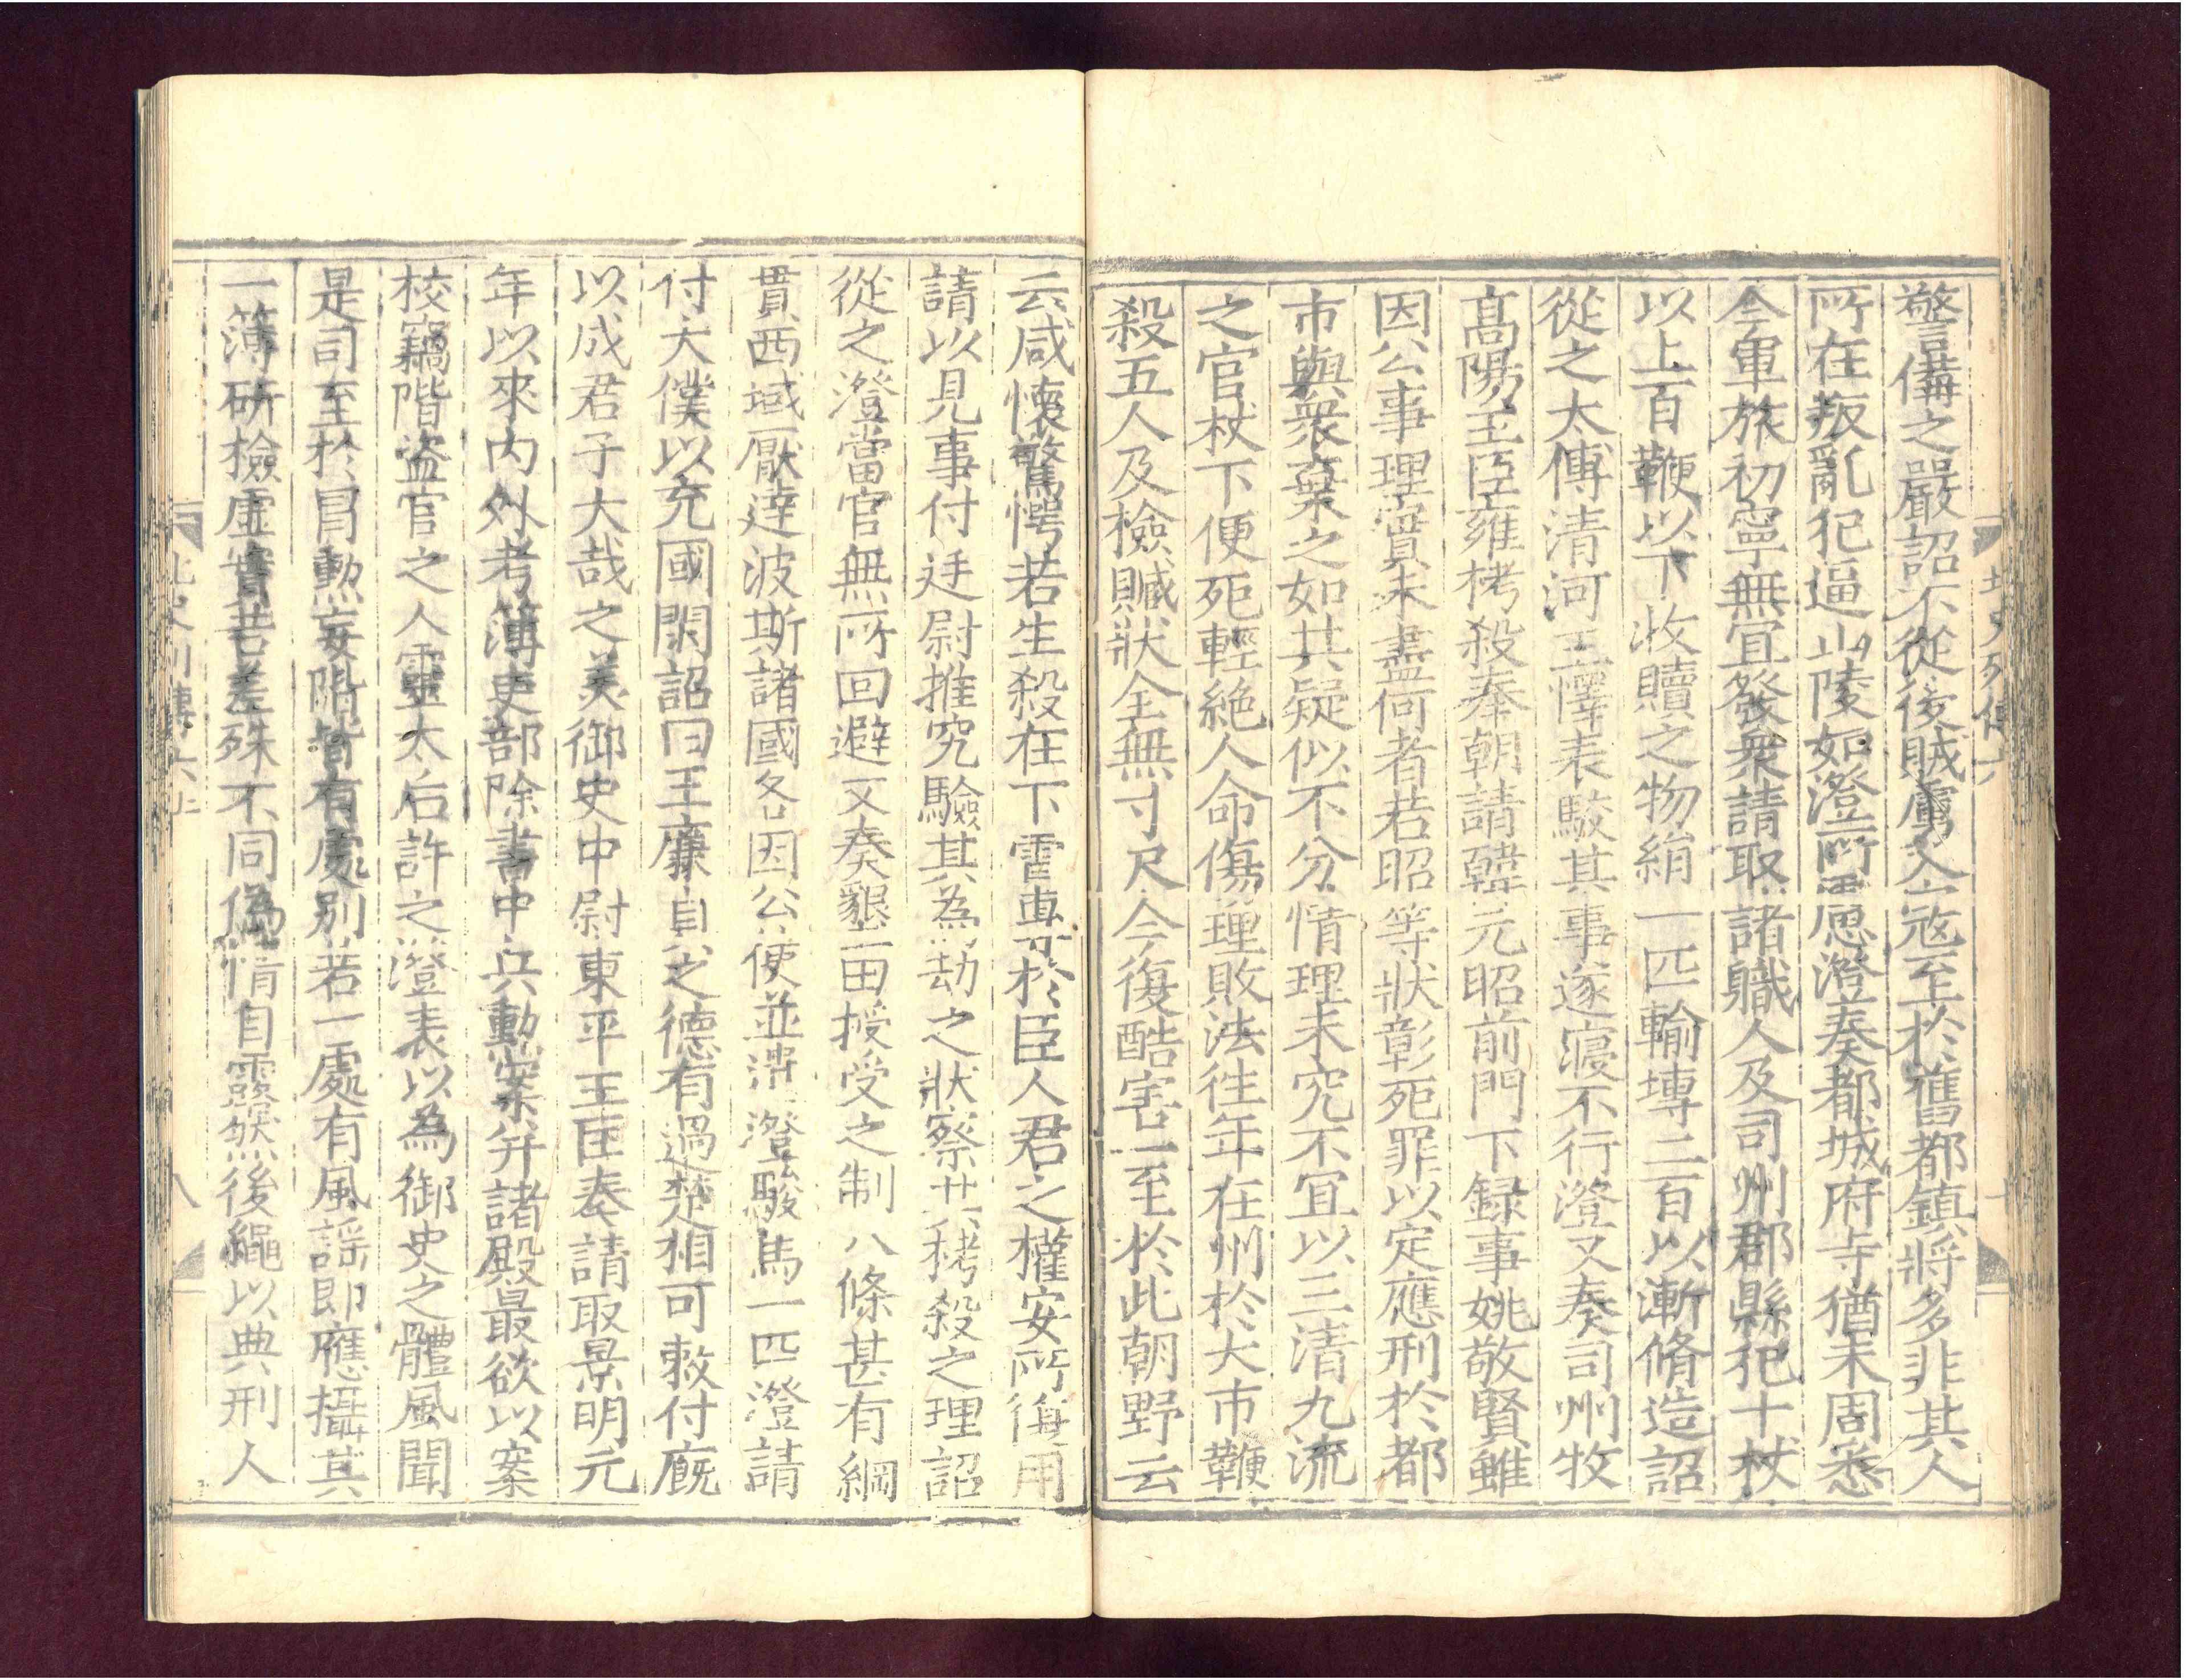 警備之嚴詔不從後賊虜入寇至於舊都鎮將多非其人
所在叛亂犯逼山陵如澄所慮澄奏都城府寺猶未周悉
今軍旅初寧無宜發衆請取諸職人及司州郡縣犯十杖
以上百鞭以下收贖之物絹一匹輸塼二百以漸脩造詔
從之太傅清河王懌表駮其事遂寢不行澄又奏司州牧
高陽王臣雍栲殺奉朝請韓元昭前門下録事姚敬賢雖
因公事理實未盡何者若昭等狀彰死罪以定應刑於都
市與衆棄之如其疑似不分情理未究不宜以三清九流
之官杖下便死輕絶人命傷理敗法往年在州於大市鞭
殺五人及檢贓狀全無寸尺今復酷害一至於此朝野云
云咸懷驚愕若生殺在下虐專於臣人君之權安所復用
請以見事付廷尉推究驗其為劫之狀察其栲殺之理詔
從之澄當官無所回避又奏墾田授受之制八條甚有綱
貫西域厭達波斯諸國各因公使並遺澄駿馬一匹澄請
付太僕以充國閑詔曰王廉自公之德有過楚相可敕付廐
以成君子大哉之美御史中尉東平王匡奏請取景明元
年以來內外考簿吏部除書中兵勳案并諸殿最欲以案
校竊階盜官之人靈太后許之澄表以為御史之體風聞
是司至於冒勲妄階皆有處别若一處有風謡即應攝其
一簿研檢虛實若差殊不同偽情自露然後繩以典刑人
北史列傳六上
八